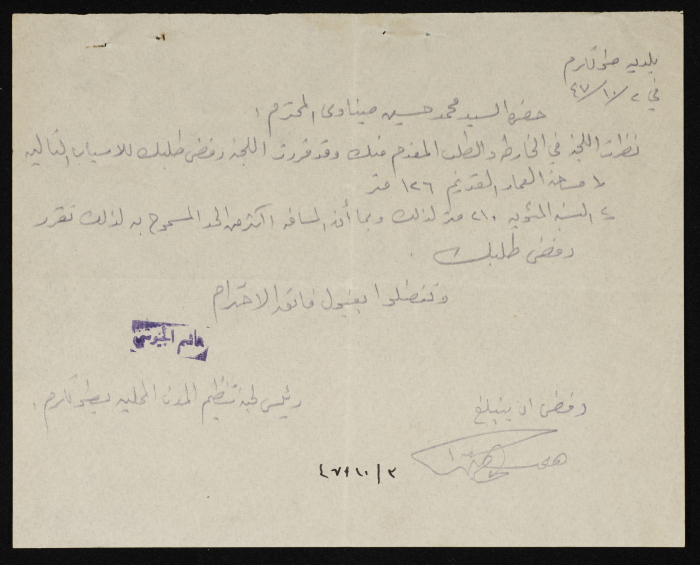 بلدية طولكرم
في ٢ / ١٠ / ٤٧
حضرة السيد محمد حسين المحترم :
نظرت اللجنة في الخارطة والطلب المقدم منك وقد قررت اللجنة رفض طلبك للاسباب التاليه
١ مساحة العمار القديم ١٢٦ متر
٢ النسبة المئويه ٢١٠ متر لذلك وبما أن المسافه اكثر من الحد المسموح به لذلك تقرر
رفض طلبك .
وتفضلوا بقبول فائق الاحترام
هاشم الجيوسي
رئيس لجنة تنظيم المدن المحليه بطولكرم .
رفض ان يتبلغ
٣ / ١٠ / ٤٧